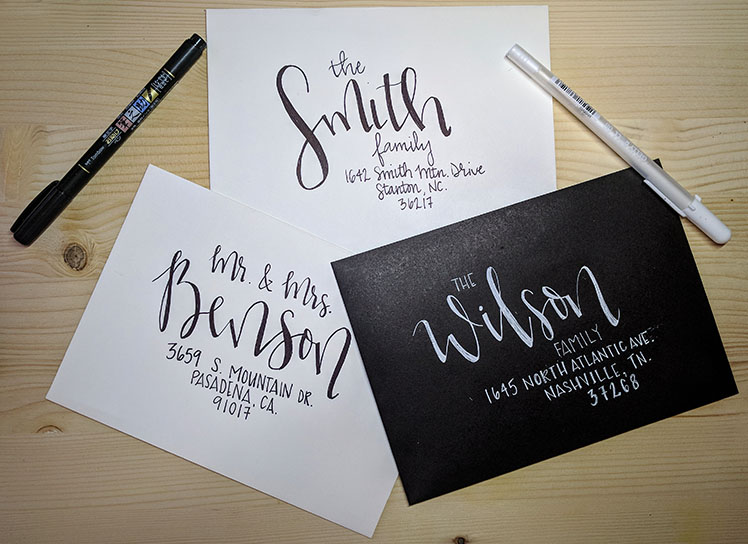 the
Smith
family
1642 Smith Mtn. Drive
Stanton, NC.
36217
mr. & mrs.
Benson
3659 S. MOUNTAIN DR.
PASADENA, CA.
91017
THE
Wilson
FAMILY
1645 NORTH ATLANTIC AVE.
NASHVILLE, TN.
37268
Tombow